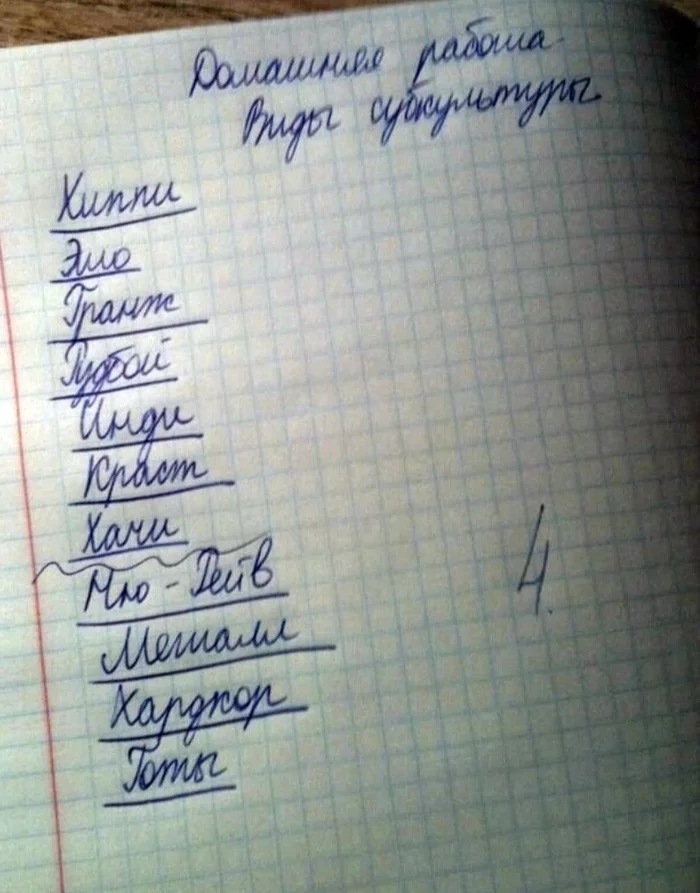 Домашняя работа.
Виды субкультуры
Хиппи
Эмо
Гранж
Рудбой
Инди
Краст
Хачи
Мью-Рейв
Металл
Хардкор
Готы
4.